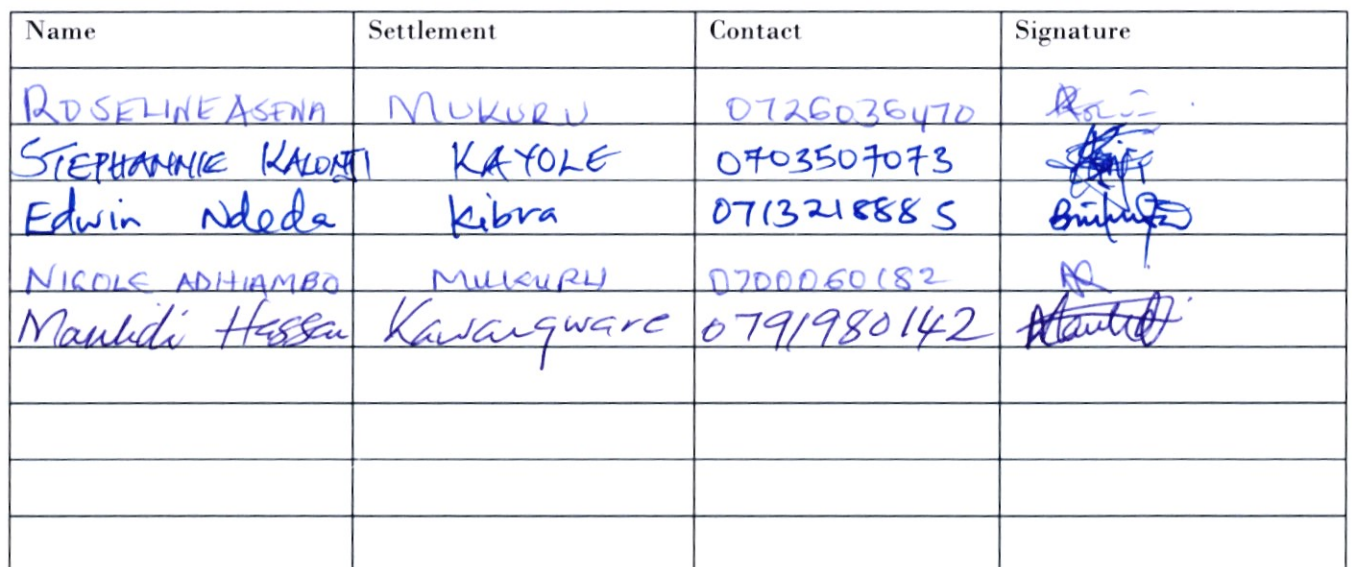 Name Settlement Contact Signature
ROSELINE ASENA MUKURU 0726036470
STEPHANNIE KALONJI KAYOLE 0703507073
Edwin Ndeda Kibra 0713218885
NICOLE ADHIAMBO MUKURU 0700060182
Maulidi Hassan Kawangware 0791980142